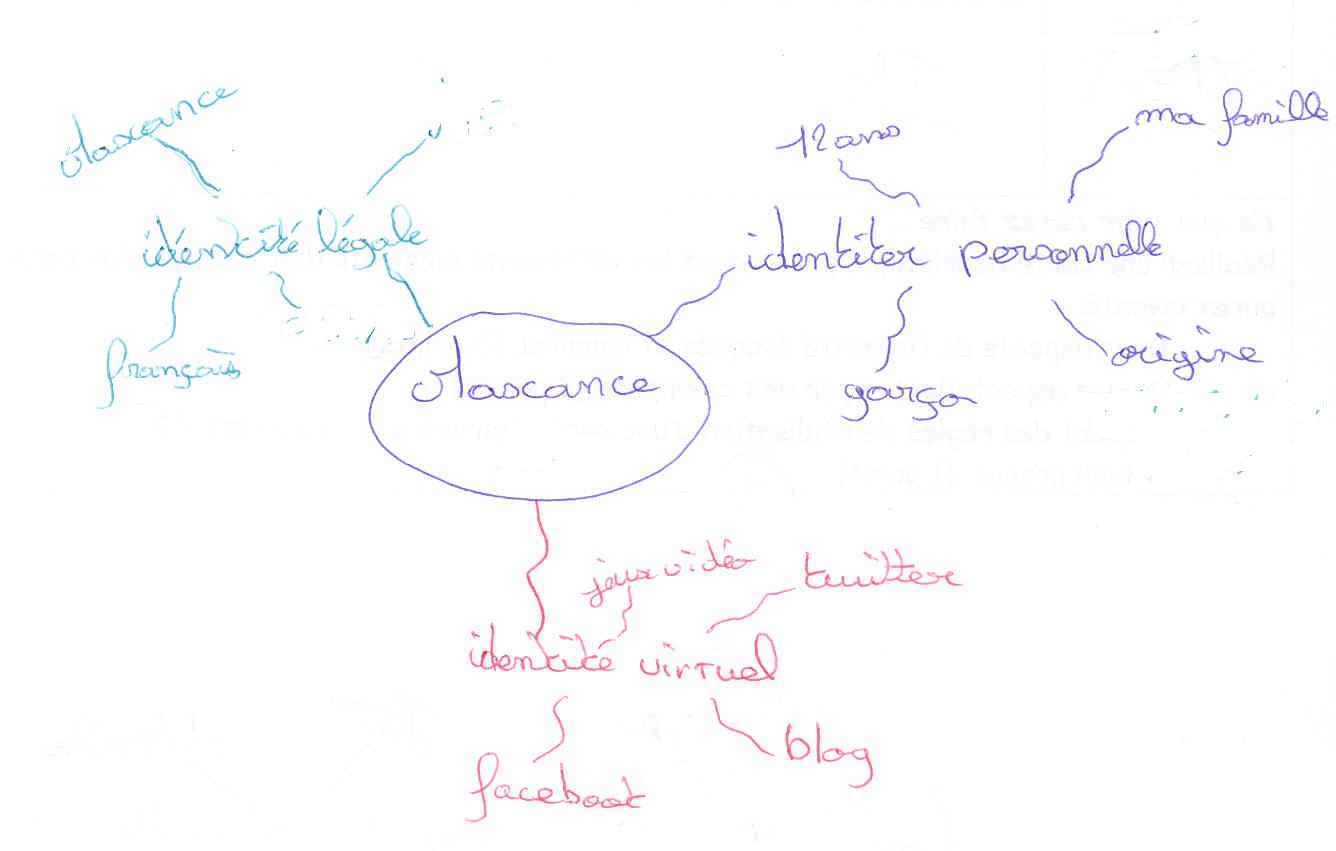 Maxance
identité légale
français
12 ans
ma famille
identiter personnelle
garço
origine
Maxance
jeux vidéo
twitter
identité virtuel
facebook
blog